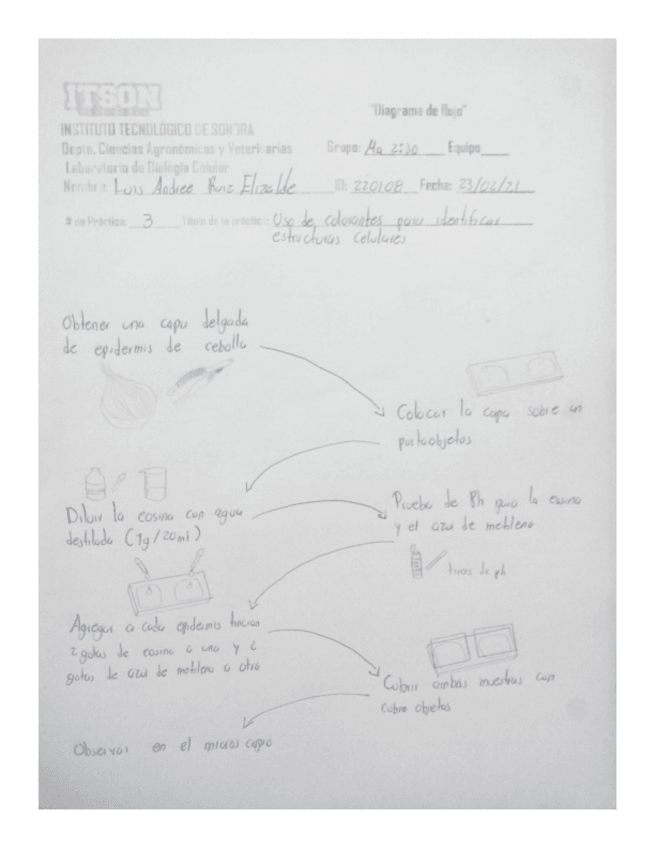 ITSON
"Diagrama de flujo"
INSTITUTO TECNOLÓGICO DE SONORA
Depto. Ciencias Agronómicas y Veterinarias Grupo: Ma 2:30 Equipo
Laboratorio de Biología Celular
Nombre: Luis Andree Ruiz Elizalde ID: 220108 Fecha: 23/02/21
# de Práctica: 3 Titulo de la práctica: Uso de colorantes para identificar
estructuras celulares
Obtener una capa delgada
de epidermis de cebolla
Colocar la capa sobre un
portaobjetos
Diluir la eosina con agua
destilada (1g/20ml)
Prueba de Ph para la eosina
y el azul de metileno
tiras de ph
Agregar a cada epidermis
2 gotas de eosina a una y 2
gotas de azul de metileno a otra
Cubrir ambas muestras con
cubre objetos
Observar en el microscopio